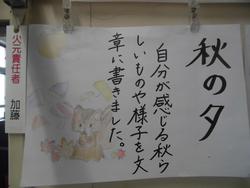 秋の夕
自分が感じる秋ら
しいものや様子を文
章に書きました。
火元責任者 加藤